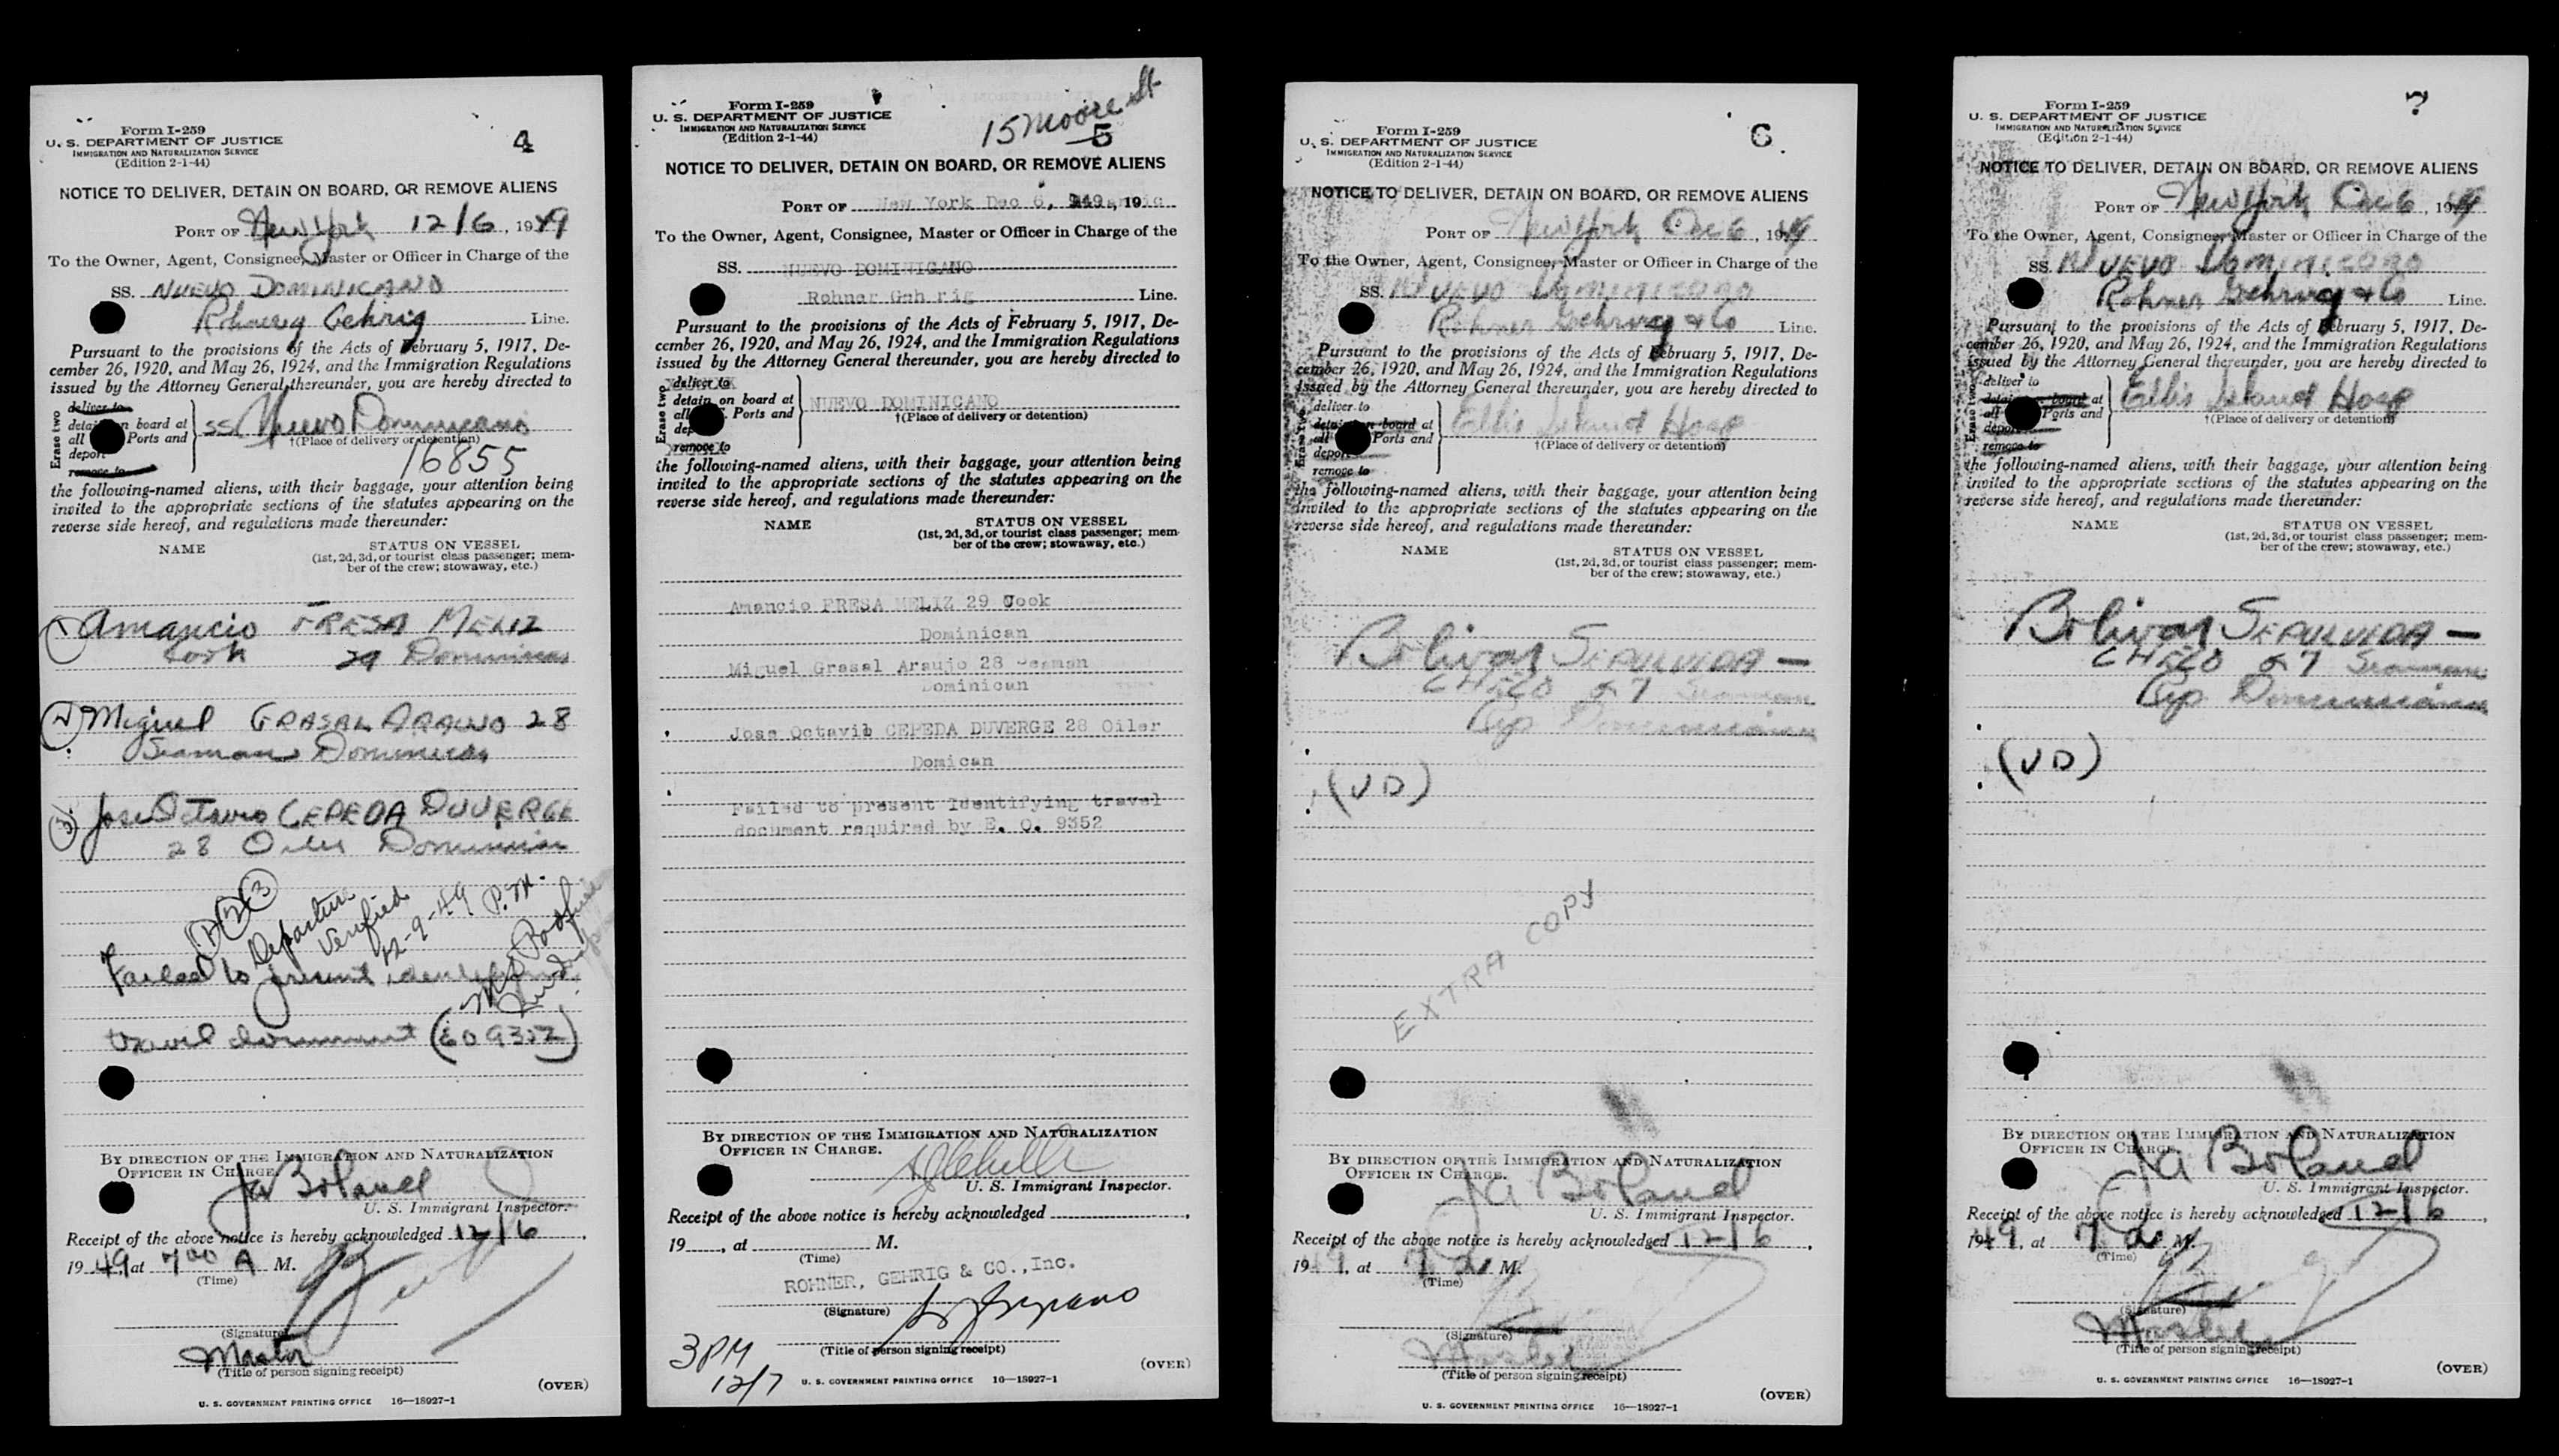 Form I-259
U. S. DEPARTMENT OF JUSTICE
IMMIGRATION AND NATURALIZATION SERVICE
(Edition 2-1-44)
4
NOTICE TO DELIVER, DETAIN ON BOARD, OR REMOVE ALIENS
PORT OF New York 12/6, 1949
To the Owner, Agent, Consignee, Master or Officer in Charge of the
SS. NUEVO DOMINICANO
Gehrig Line.
Pursuant to the provisions of the Acts of February 5, 1917, De-
cember 26, 1920, and May 26, 1924, and the Immigration Regulations
issued by the Attorney General thereunder, you are hereby directed to
Erase two
deliver to
detain on board at
all Ports and
deport
remove to
SS. Nuevo Dominicano
†(Place of delivery or detention)
16855
the following-named aliens, with their baggage, your attention being
invited to the appropriate sections of the statutes appearing on the
reverse side hereof, and regulations made thereunder:
NAME STATUS ON VESSEL
(1st, 2d, 3d, or tourist class passenger; mem-
ber of the crew; stowaway, etc.)
1 Amancio FRESA MELIZ
29
2 Miguel GRASAL ARAUJO 28
Seaman Dominican
3 Jose Octavio CEPEDA DUVERGE
28 Oiler Dominican
1 2 3
Departure
Verified
12-9-49 P.M.
Failed to present
travel document (EO 9352)
BY DIRECTION OF THE IMMIGRATION AND NATURALIZATION
OFFICER IN CHARGE.
JA Boland
U. S. Immigrant Inspector.
Receipt of the above notice is hereby acknowledged 12/6,
1949, at 700 A M.
(Time)
(Signature)
Master
(Title of person signing receipt)
(OVER)
U. S. GOVERNMENT PRINTING OFFICE 16—18927-1
Form I-259
U. S. DEPARTMENT OF JUSTICE
IMMIGRATION AND NATURALIZATION SERVICE
(Edition 2-1-44)
15 Moore St
5
NOTICE TO DELIVER, DETAIN ON BOARD, OR REMOVE ALIENS
PORT OF New York Dec 6, 949, 19
To the Owner, Agent, Consignee, Master or Officer in Charge of the
SS. NUEVO DOMINICANO
Rohner Gehrig Line.
Pursuant to the provisions of the Acts of February 5, 1917, De-
cember 26, 1920, and May 26, 1924, and the Immigration Regulations
issued by the Attorney General thereunder, you are hereby directed to
Erase two
deliver to
detain on board at
all Ports and
dep
remove to
NUEVO DOMINICANO
†(Place of delivery or detention)
the following-named aliens, with their baggage, your attention being
invited to the appropriate sections of the statutes appearing on the
reverse side hereof, and regulations made thereunder:
NAME STATUS ON VESSEL
(1st, 2d, 3d, or tourist class passenger; mem-
ber of the crew; stowaway, etc.)
Amancio FRESA MELIZ 29 Cook
Dominican
Miguel Grasal Araujo 28 Seaman
Dominican
Jose Octavio CEPEDA DUVERGE 28 Oiler
Domican
Failed to present Identifying travel
document required by E. O. 9352
BY DIRECTION OF THE IMMIGRATION AND NATURALIZATION
OFFICER IN CHARGE.
U. S. Immigrant Inspector.
Receipt of the above notice is hereby acknowledged ,
19 , at M.
(Time)
ROHNER, GEHRIG & CO.,Inc.
(Signature)
(Title of person signing receipt)
3PM
12/7
(OVER)
U. S. GOVERNMENT PRINTING OFFICE 16—18927-1
Form I-259
U. S. DEPARTMENT OF JUSTICE
IMMIGRATION AND NATURALIZATION SERVICE
(Edition 2-1-44)
6
NOTICE TO DELIVER, DETAIN ON BOARD, OR REMOVE ALIENS
PORT OF New York Dec 6, 1949
To the Owner, Agent, Consignee, Master or Officer in Charge of the
SS. NUEVO Dominicano
Rohner Gehrig & Co Line.
Pursuant to the provisions of the Acts of February 5, 1917, De-
cember 26, 1920, and May 26, 1924, and the Immigration Regulations
issued by the Attorney General thereunder, you are hereby directed to
deliver to
detain on board at
all Ports and
deport
remove to
Ellis Island Hosp
†(Place of delivery or detention)
the following-named aliens, with their baggage, your attention being
invited to the appropriate sections of the statutes appearing on the
reverse side hereof, and regulations made thereunder:
NAME STATUS ON VESSEL
(1st, 2d, 3d, or tourist class passenger; mem-
ber of the crew; stowaway, etc.)
Bolivar SEPULVEDA —
CHECO 27 Seaman
Dominican
(VD)
EXTRA COPY
BY DIRECTION OF THE IMMIGRATION AND NATURALIZATION
OFFICER IN CHARGE.
JA Boland
U. S. Immigrant Inspector.
Receipt of the above notice is hereby acknowledged 12/6,
1949, at 7 a M.
(Time)
(Signature)
Master
(Title of person signing receipt)
(OVER)
U. S. GOVERNMENT PRINTING OFFICE 16—18927-1
Form I-259
U. S. DEPARTMENT OF JUSTICE
IMMIGRATION AND NATURALIZATION SERVICE
(Edition 2-1-44)
7
NOTICE TO DELIVER, DETAIN ON BOARD, OR REMOVE ALIENS
PORT OF New York Dec 6, 1949
To the Owner, Agent, Consignee, Master or Officer in Charge of the
SS. NUEVO Dominicano
Rohner Gehrig & Co Line.
Pursuant to the provisions of the Acts of February 5, 1917, De-
cember 26, 1920, and May 26, 1924, and the Immigration Regulations
issued by the Attorney General thereunder, you are hereby directed to
deliver to
detain on board at
all Ports and
deport
remove to
Ellis Island Hosp
†(Place of delivery or detention)
the following-named aliens, with their baggage, your attention being
invited to the appropriate sections of the statutes appearing on the
reverse side hereof, and regulations made thereunder:
NAME STATUS ON VESSEL
(1st, 2d, 3d, or tourist class passenger; mem-
ber of the crew; stowaway, etc.)
Bolivar SEPULVEDA —
CHECO 27 Seaman
Dominican
(VD)
BY DIRECTION OF THE IMMIGRATION AND NATURALIZATION
OFFICER IN CHARGE.
JA Boland
U. S. Immigrant Inspector.
Receipt of the above notice is hereby acknowledged 12/6,
1949, at 7 a M.
(Time)
(Signature)
Master
(Title of person signing receipt)
(OVER)
U. S. GOVERNMENT PRINTING OFFICE 16—18927-1